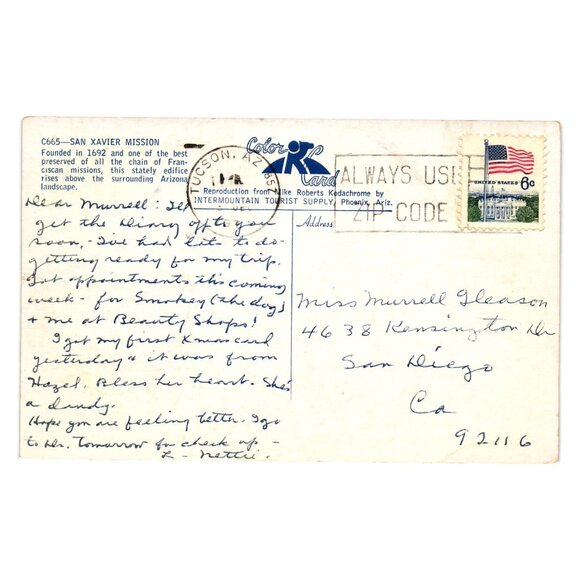 C665—SAN XAVIER MISSION
Founded in 1692 and one of the best
preserved of all the chain of Fran-
ciscan missions, this stately edifice
rises above the surrounding Arizona
landscape.
Color
Card
Reproduction from Mike Roberts Kodachrome by
INTERMOUNTAIN TOURIST SUPPLY, Phoenix, Ariz.
Address
TUCSON, AZ 857
PM
ALWAYS USE
ZIP CODE
UNITED STATES 6c
Dear Murrell: I'll
get the Diary off to you
soon,- I've had lots to do-
getting ready for my trip.
Got appointments this coming
week - for Smokey (the dog)
& me at Beauty Shops!
I got my first Xmas card
yesterday & it was from
Hazel. Bless her heart. She's
a dandy.
Hope you are feeling better. I go
to Dr. Tomorrow for check up -
L - Nettie.
Miss Murrell Gleason
4638 Kensington Dr
San Diego
Ca
92116